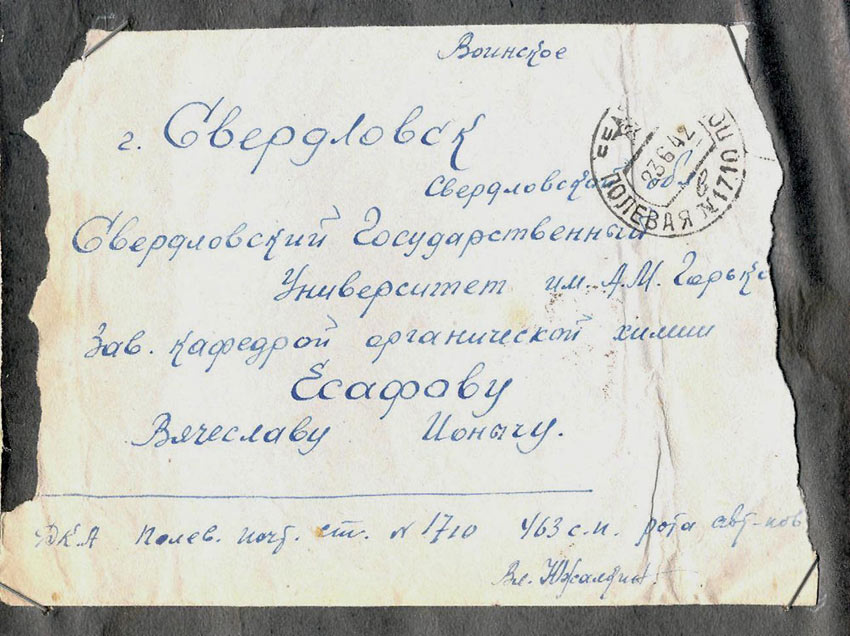 Воинское
г. Свердловск
Свердловской обл
23 6 42
ПОЛЕВАЯ N 1710
Свердловский Государственный
Университет им. А.М. Горько
Зав. кафедрой органической химии
Есафову
Вячеславу Ионычу.
ДКА Полев. почт. ст. N 1710 463 с.п. рота авт-ков
Вл.